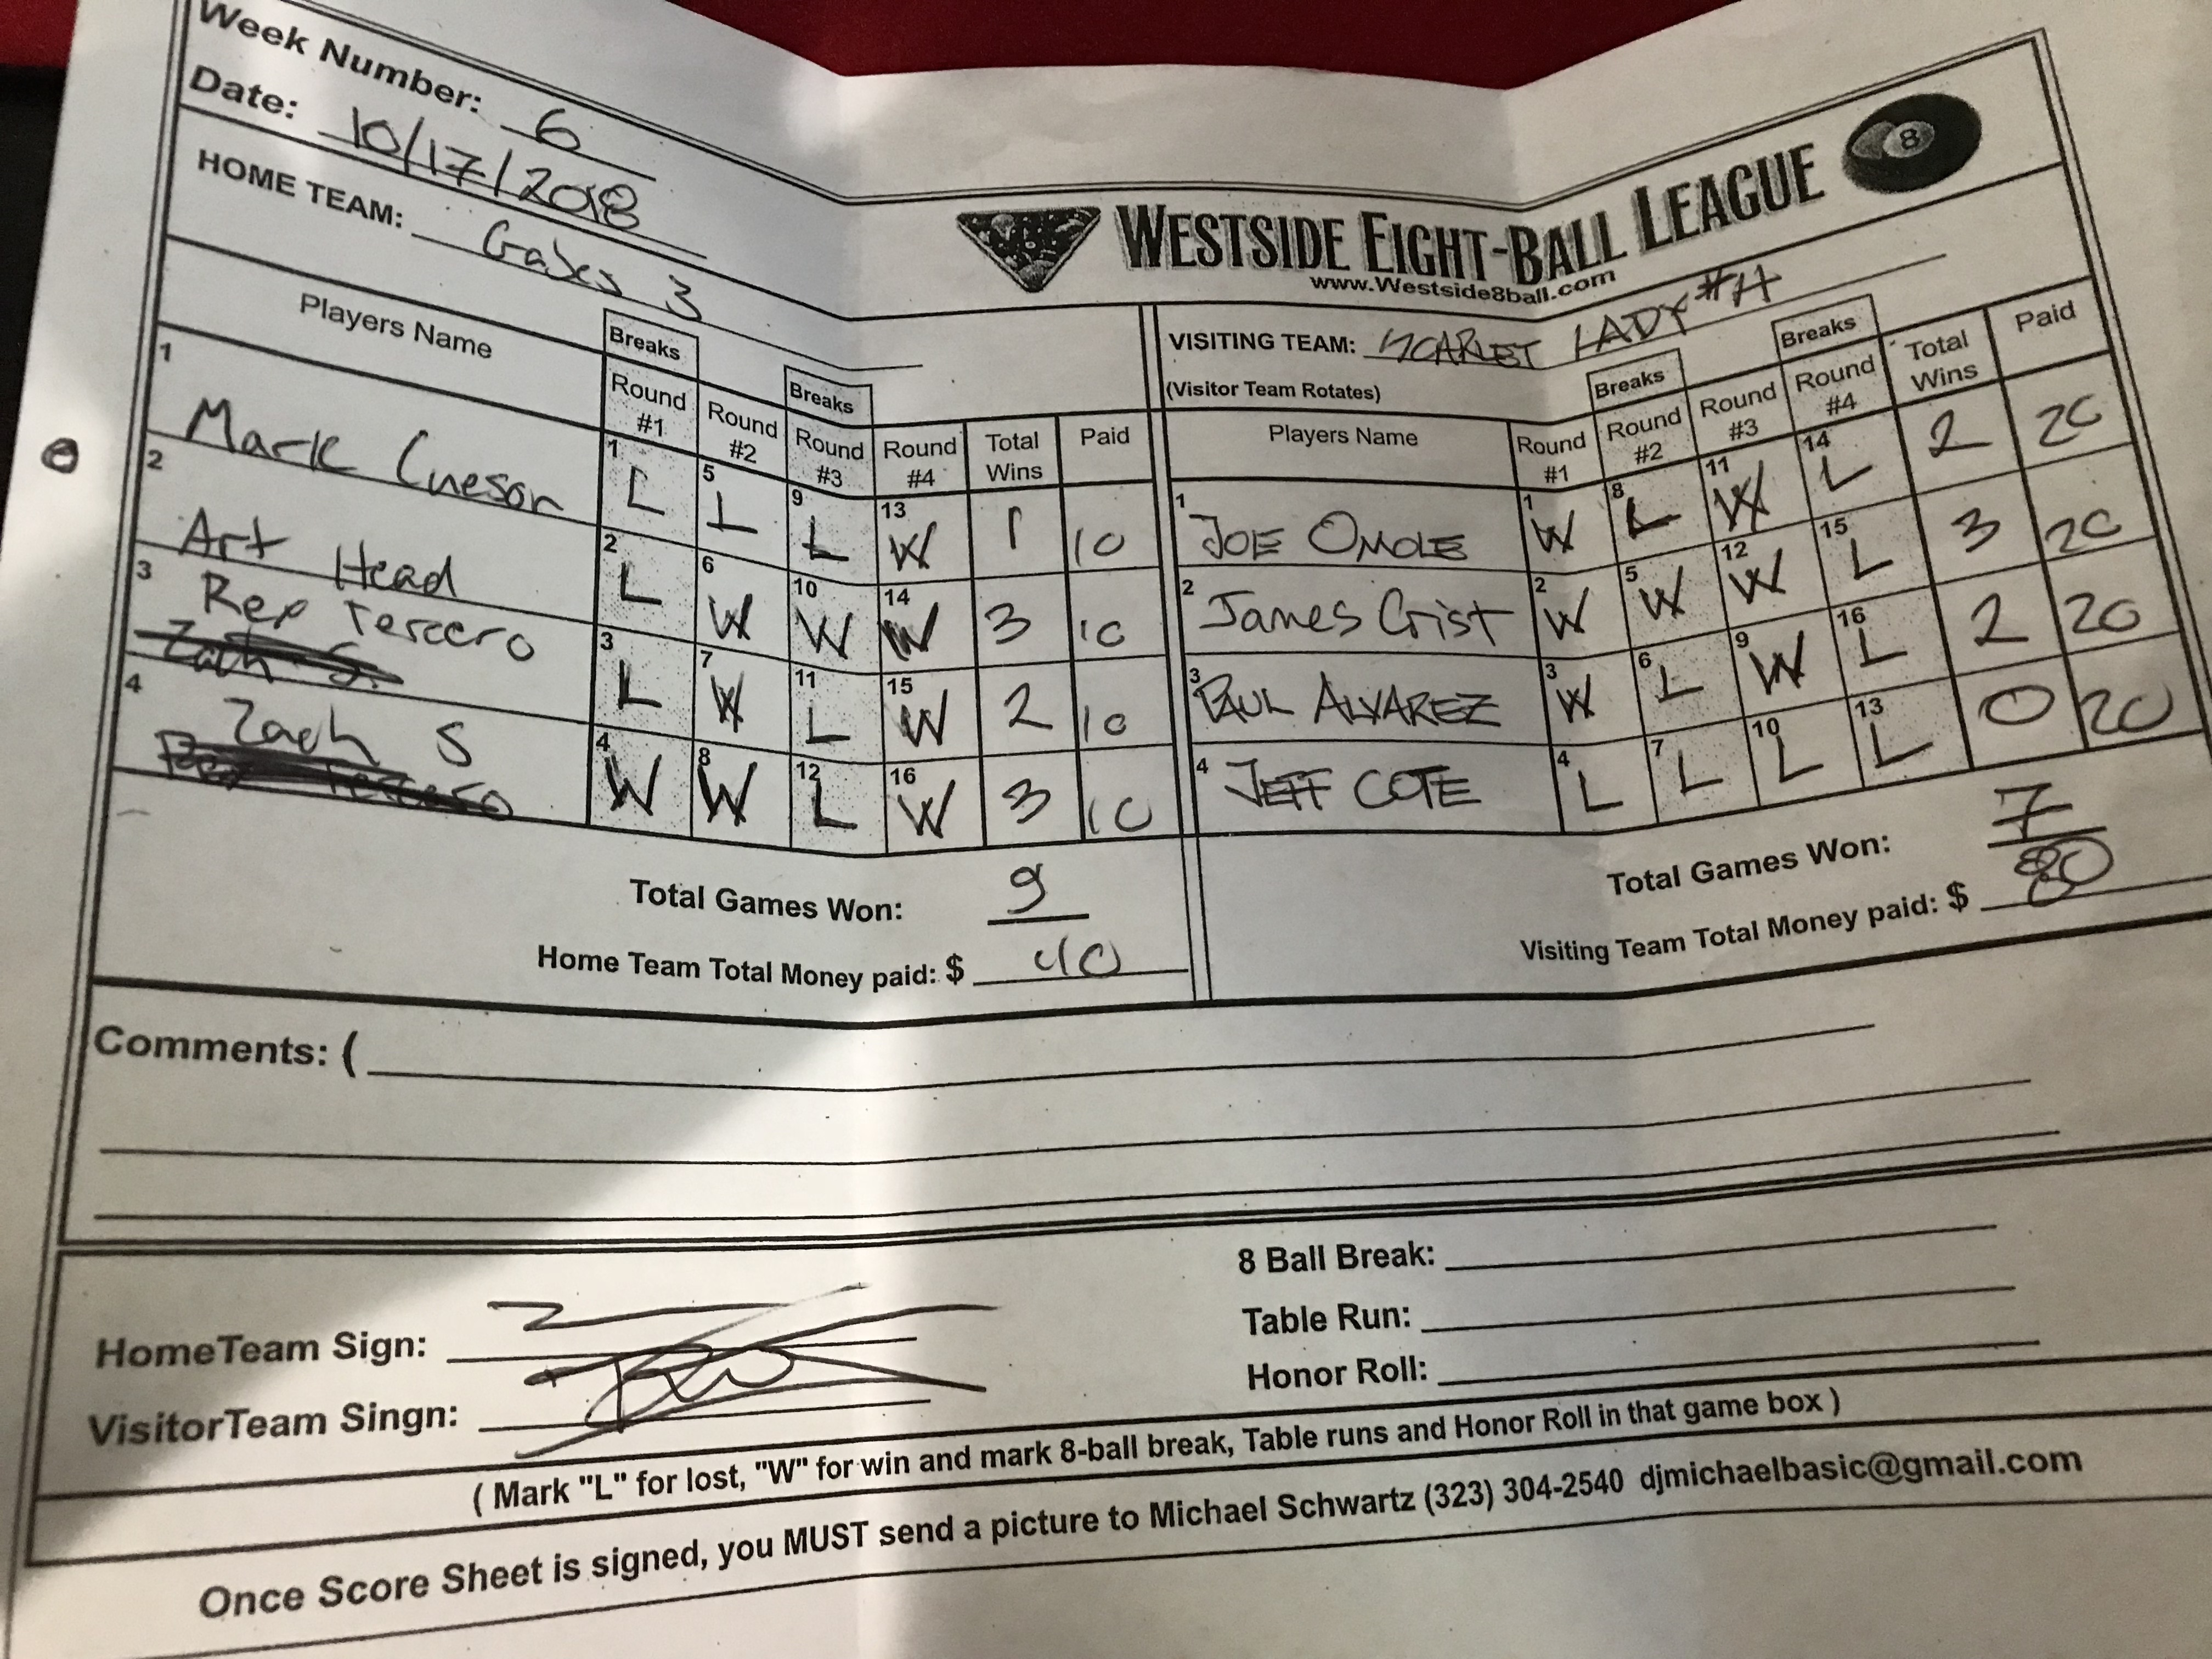 Week Number: 6
Date: 10/17/2018
HOME TEAM: Gabes 3
WESTSIDE EIGHT-BALL LEAGUE
8
www.Westside8ball.com
VISITING TEAM: SCARLET LADY #4
(Visitor Team Rotates)
Players Name Breaks Round #1 Round #2 Breaks Round #3 Round #4 Total Wins Paid
1 Mark Cueson 1 L 5 L 9 L 13 W 1 10
2 Art Head 2 L 6 W 10 W 14 W 3 10
3 Rep Tercero Zach S. 3 L 7 W 11 L 15 W 2 10
4 Zach S Rep Tercero 4 W 8 W 12 L 16 W 3 10
Total Games Won: 9
Home Team Total Money paid: $ 40
Players Name Round #1 Breaks Round #2 Round #3 Breaks Round #4 Total Wins Paid
1 JOE OMOLE 1 W 8 L 11 W 14 L 2 20
2 James Crist 2 W 5 W 12 W 15 L 3 20
3 PAUL ALVAREZ 3 W 6 L 9 W 16 L 2 20
4 JEFF COTE 4 L 7 L 10 L 13 L 0 20
Total Games Won: 7
Visiting Team Total Money paid: $ 80
Comments: (
HomeTeam Sign:
VisitorTeam Singn:
8 Ball Break:
Table Run:
Honor Roll:
( Mark "L" for lost, "W" for win and mark 8-ball break, Table runs and Honor Roll in that game box )
Once Score Sheet is signed, you MUST send a picture to Michael Schwartz (323) 304-2540 djmichaelbasic@gmail.com